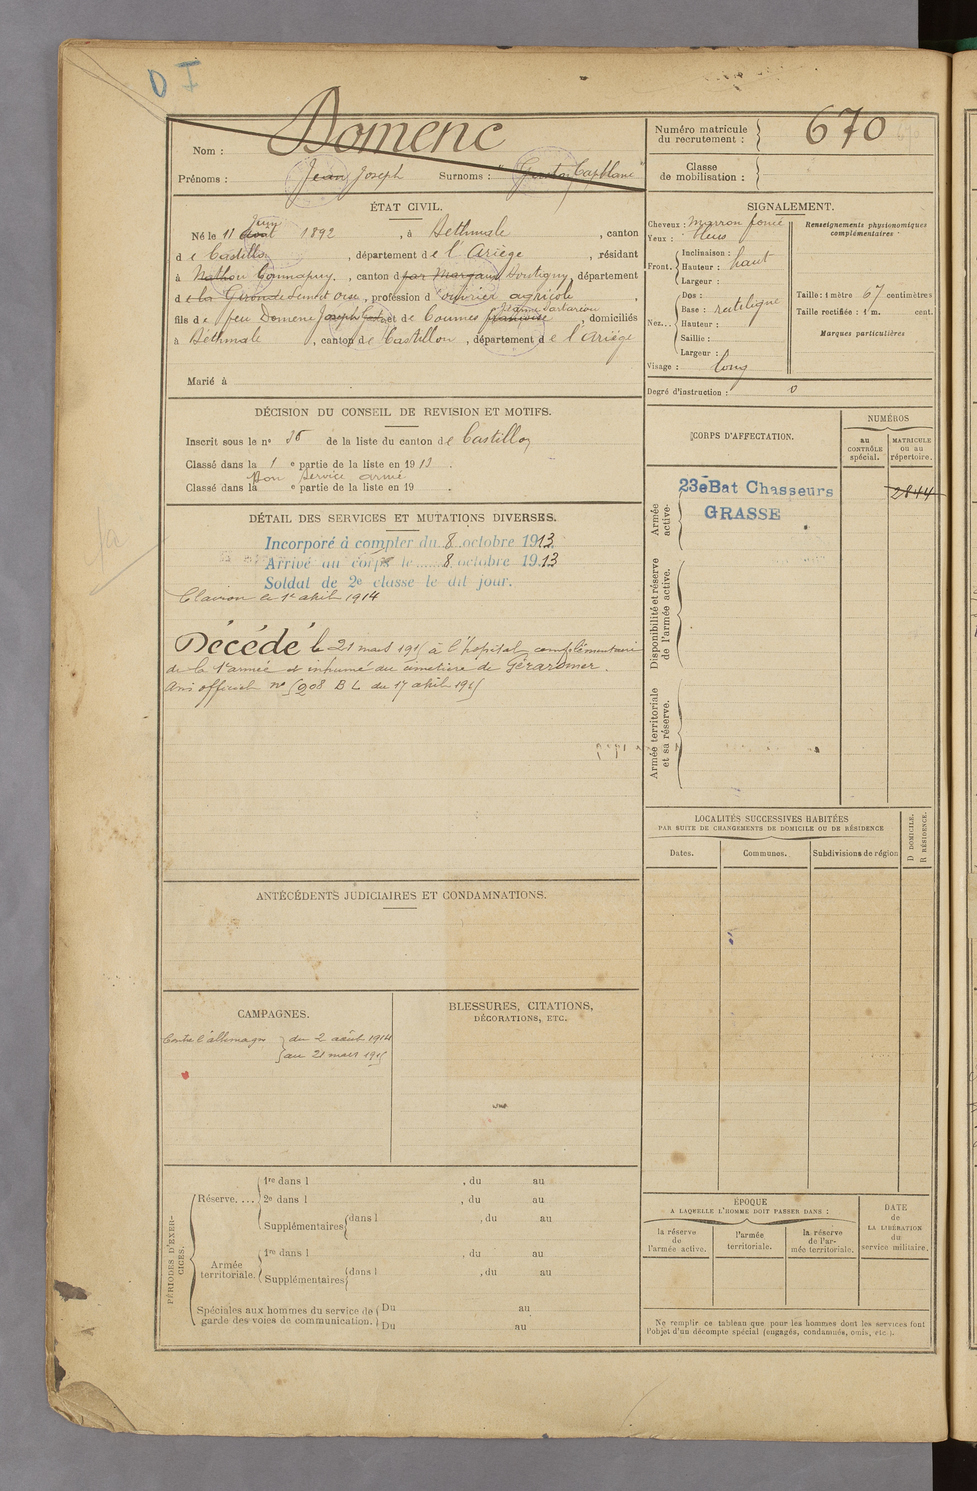 D I
Nom : Domenc
Prénoms : Jean Joseph Surnoms : "Capblanc"
Numéro matricule du recrutement : 670
Classe de mobilisation :
ÉTAT CIVIL.
Juin
Né le 11 août 1892, à Bethmale, canton
de Castillon, département de l'Ariège, résidant
à Gommapuy, canton Houtigny, département
de la Gironde Seine et Oise, profession d'ouvrier agricole,
fils de feu Domenc Joseph et de Coumes françoise, domiciliés
à Bethmale, canton de Castillon, département de l'Ariège
Marié à
SIGNALEMENT.
Cheveux : marron foncé
Yeux : bleus
Front. Inclinaison :
Hauteur : haut
Largeur :
Nez... Dos :
Base : rectiligne
Hauteur :
Saillie :
Largeur :
Visage : long
Renseignements physionomiques complémentaires :
Taille : 1 mètre 67 centimètres
Taille rectifiée : 1 m. cent.
Marques particulières
Degré d'instruction : 0
DÉCISION DU CONSEIL DE REVISION ET MOTIFS.
Inscrit sous le n° 36 de la liste du canton de Castillon
Classé dans la 1e partie de la liste en 1913.
Bon service armé
Classé dans la e partie de la liste en 19 .
CORPS D'AFFECTATION.
NUMÉROS
au CONTRÔLE spécial.
MATRICULE ou au répertoire.
Armée active.
23e Bat Chasseurs
GRASSE
2844
Disponibilité et réserve de l'armée active.
Armée territoriale et sa réserve.
DÉTAIL DES SERVICES ET MUTATIONS DIVERSES.
Incorporé à compter du 8 octobre 1913
Arrivé au corps le 8 octobre 1913
Soldat de 2e classe le dit jour.
Clairon le 1er avril 1914
Décédé le 21 mars 1915 à l'hôpital complémentaire
de la 1e armée et inhumé au cimetière de Gérardmer.
Avis officiel n° 5208 BL du 17 avril 1915
LOCALITÉS SUCCESSIVES HABITÉES
PAR SUITE DE CHANGEMENTS DE DOMICILE OU DE RÉSIDENCE
Dates.
Communes.
Subdivisions de région
D DOMICILE.
R RÉSIDENCE.
ANTÉCÉDENTS JUDICIAIRES ET CONDAMNATIONS.
CAMPAGNES.
Contre l'allemagne du 2 août 1914
au 21 mars 1915
BLESSURES, CITATIONS,
DÉCORATIONS, ETC.
PÉRIODES D'EXERCICES.
Réserve. ... 1re dans l , du au
2e dans l , du au
Supplémentaires dans l , du au
Armée territoriale. 1re dans l , du au
Supplémentaires dans l , du au
Spéciales aux hommes du service de garde des voies de communication. Du au
Du au
ÉPOQUE
A LAQUELLE L'HOMME DOIT PASSER DANS :
la réserve de l'armée active.
l'armée territoriale.
la réserve de l'armée territoriale.
DATE de LA LIBÉRATION du service militaire.
Ne remplir ce tableau que pour les hommes dont les services font
l'objet d'un décompte spécial (engagés, condamnés, omis, etc.).